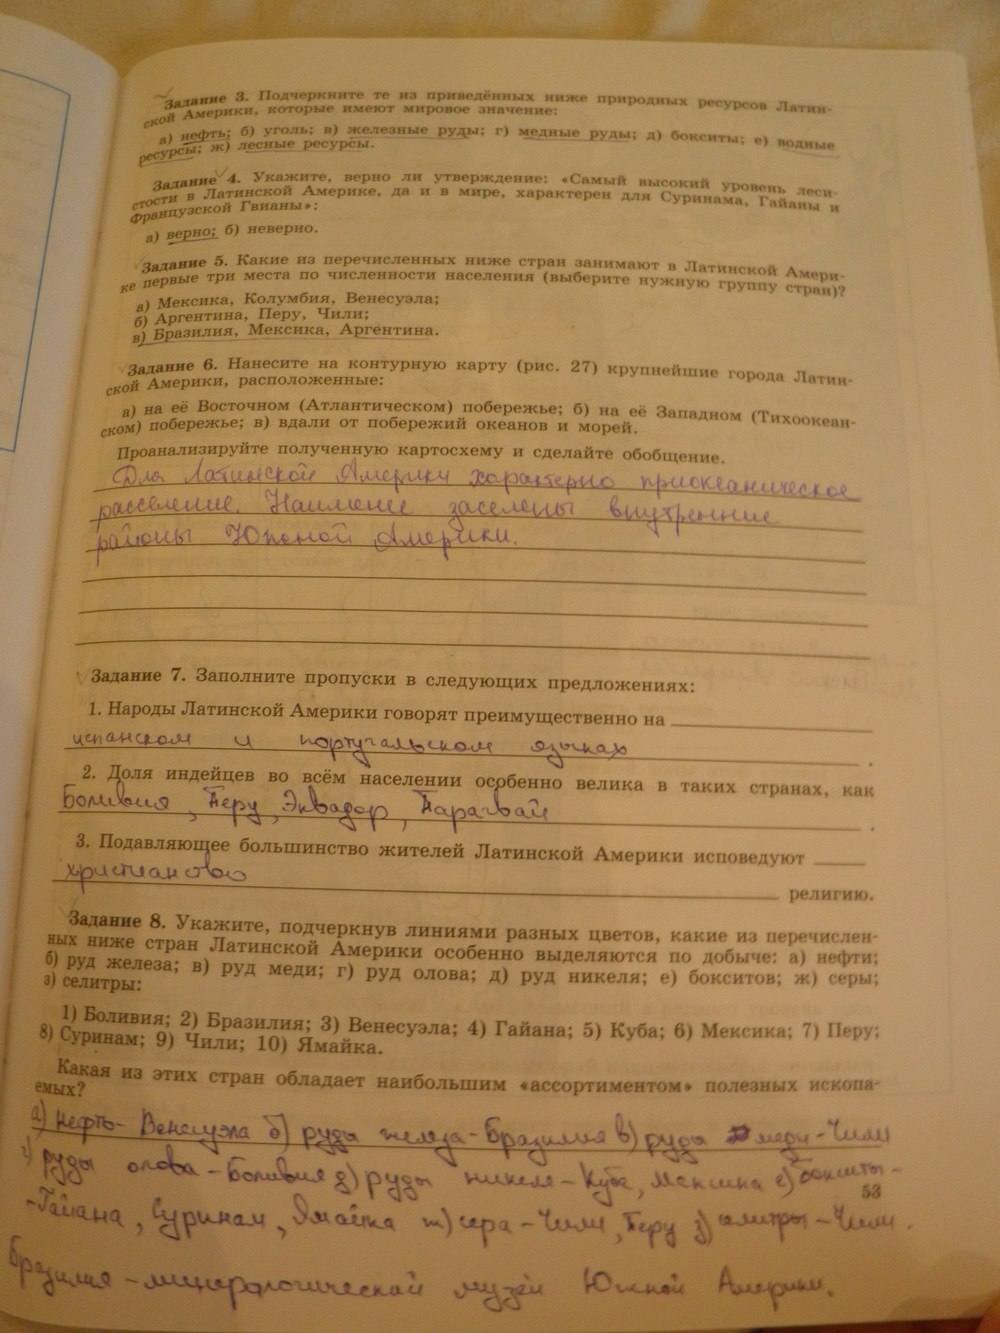 Задание 3. Подчеркните те из приведённых ниже природных ресурсов Латин-
ской Америки, которые имеют мировое значение:
а) нефть; б) уголь; в) железные руды; г) медные руды; д) бокситы; е) водные
ресурсы; ж) лесные ресурсы.
Задание 4. Укажите, верно ли утверждение: «Самый высокий уровень леси-
стости в Латинской Америке, да и в мире, характерен для Суринама, Гайаны и
Французской Гвианы»:
а) верно; б) неверно.
Задание 5. Какие из перечисленных ниже стран занимают в Латинской Амери-
ке первые три места по численности населения (выберите нужную группу стран)?
а) Мексика, Колумбия, Венесуэла;
б) Аргентина, Перу, Чили;
в) Бразилия, Мексика, Аргентина.
Задание 6. Нанесите на контурную карту (рис. 27) крупнейшие города Латин-
ской Америки, расположенные:
а) на её Восточном (Атлантическом) побережье; б) на её Западном (Тихоокеан-
ском) побережье; в) вдали от побережий океанов и морей.
Проанализируйте полученную картосхему и сделайте обобщение.
Для Латинской Америки характерно приокеаническое
расселение. Наименее заселены внутренние
районы Южной Америки.
Задание 7. Заполните пропуски в следующих предложениях:
1. Народы Латинской Америки говорят преимущественно на
испанском и португальском языках .
2. Доля индейцев во всём населении особенно велика в таких странах, как
Боливия, Перу, Эквадор, Парагвай .
3. Подавляющее большинство жителей Латинской Америки исповедуют
христианство религию.
Задание 8. Укажите, подчеркнув линиями разных цветов, какие из перечислен-
ных ниже стран Латинской Америки особенно выделяются по добыче: а) нефти;
б) руд железа; в) руд меди; г) руд олова; д) руд никеля; е) бокситов; ж) серы;
з) селитры:
1) Боливия; 2) Бразилия; 3) Венесуэла; 4) Гайана; 5) Куба; 6) Мексика; 7) Перу;
8) Суринам; 9) Чили; 10) Ямайка.
Какая из этих стран обладает наибольшим «ассортиментом» полезных ископа-
емых?
а) нефть - Венесуэла б) руды железа - Бразилия в) руды меди - Чили
г) руды олова - Боливия д) руды никеля - Куба, Мексика е) бокситы -
53
- Гайана, Суринам, Ямайка ж) сера - Чили, Перу з) селитры - Чили.
Бразилия - минерологический музей Южной Америки.